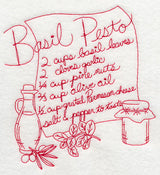 Basil Pesto
2 cups basil leaves
2 cloves garlic
¼ cup pine nuts
¾ cup olive oil
½ cup grated Parmesan cheese
salt & pepper to taste